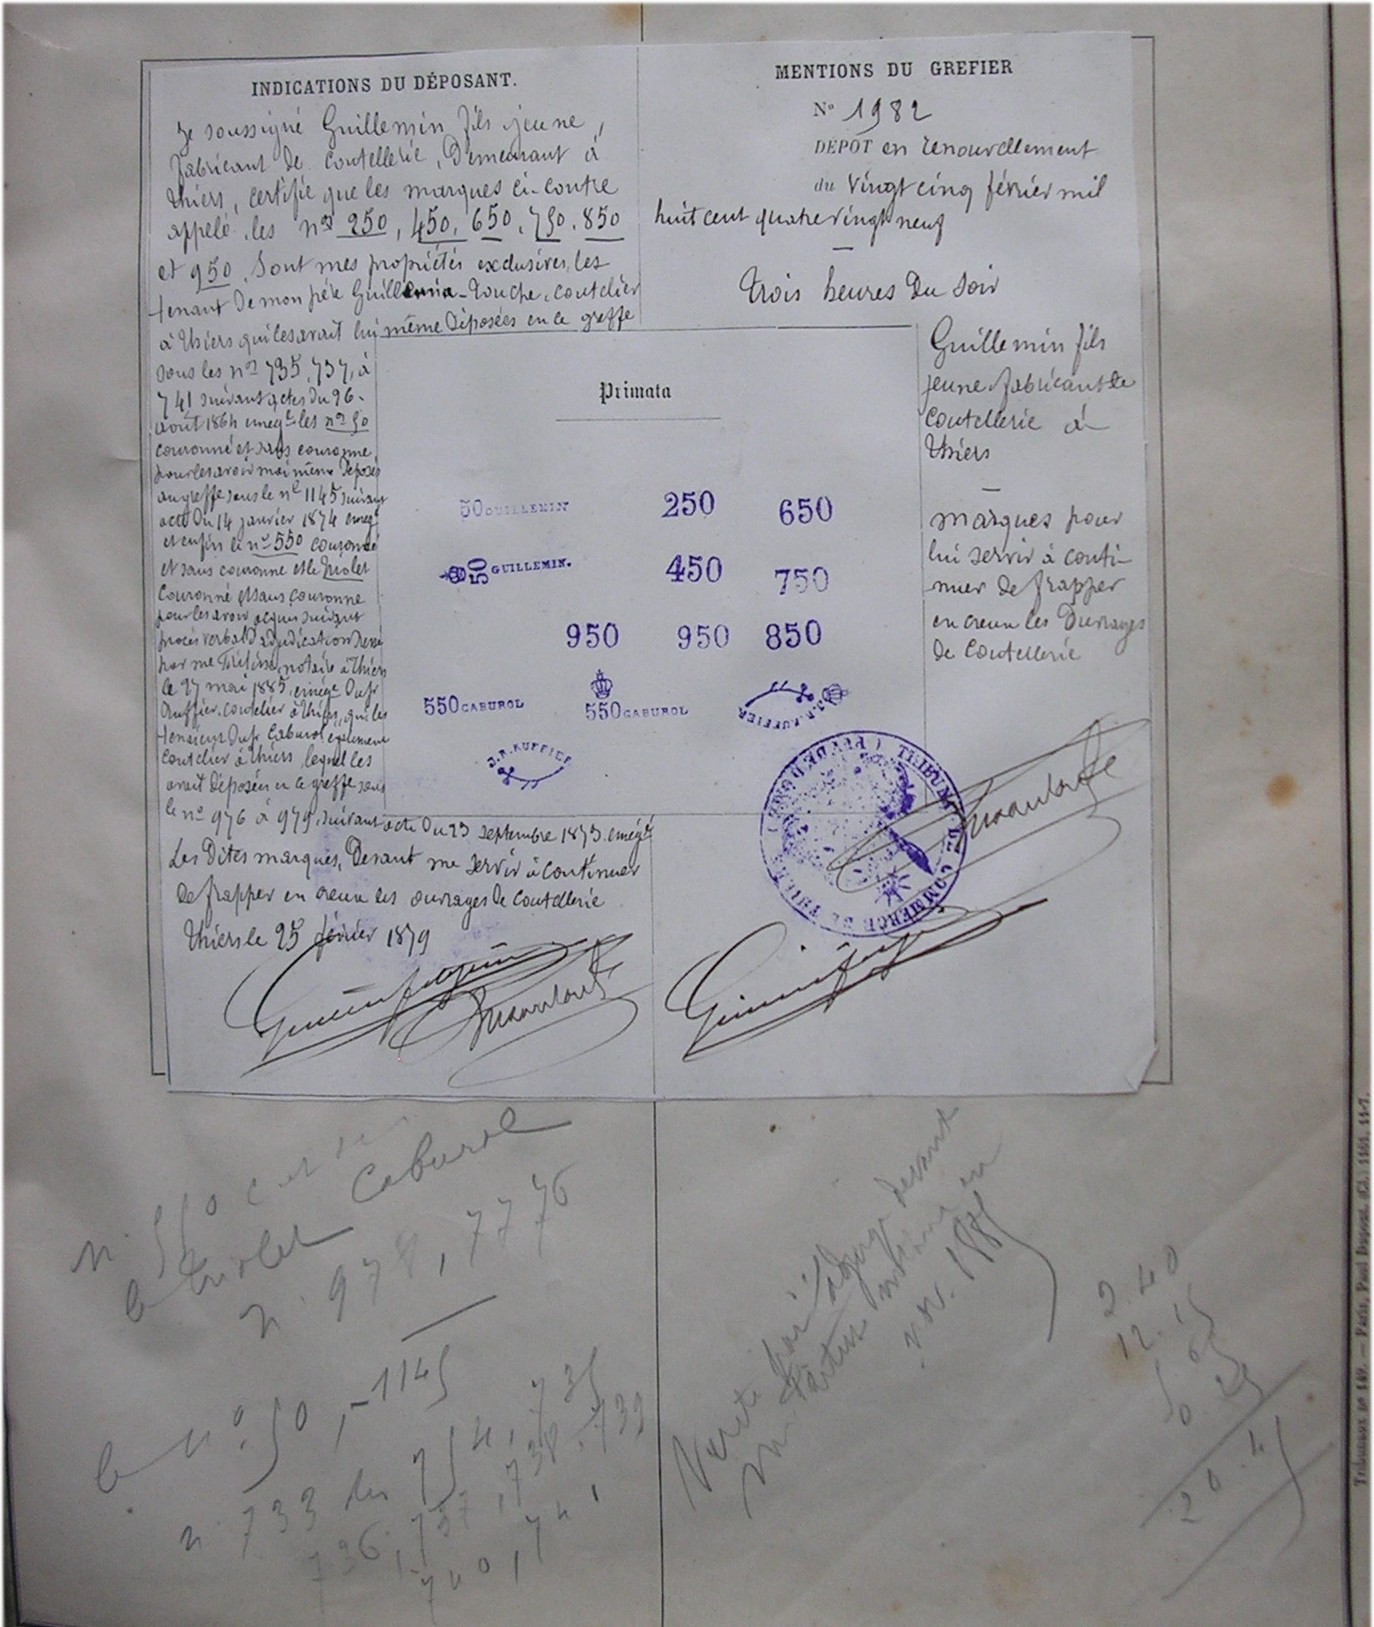 INDICATIONS DU DÉPOSANT.
Je soussigné Guillemin fils jeune,
fabricant de coutellerie, Demeurant à
Thiers, certifie que les marques ci-contre
appelé les nos 250, 450, 650, 750, 850
et 950. Sont mes propriétés exclusives, les
tenant de mon père Guillemin-Touche, coutelier
à Thiers qui les avait lui même Déposées en ce greffe
sous les nos 735, 737, à
741 suivant actes du 26
août 1864 les no 50
couronné et sans couronne
pour les avoir moi même Déposé
au greffe sous le no 1145 suivant
acte Du 14 janvier 1874
et enfin le no 550 couronné
et sans couronne et le
Couronné et sans couronne
pour les avoir acquis suivant
procès verbal d'adjudication
par me notaire à Thiers
le 27 mai 1885,
Ruffier, coutelier à Thiers, qui les
Caburol également
Coutelier à Thiers, lequel les
avait déposées en ce greffe sous
le no 976 à 979, suivant acte Du 23 septembre 1873.
Les Dites marques, Devant me servir à continuer
de frapper en creux les ouvrages de Coutellerie
Thiers le 25 février 1879
MENTIONS DU GREFIER
No 1982
DÉPOT en renouvellement
du Vingt cinq février mil
huit cent quatre vingt neuf
Trois heures Du Soir
Guillemin fils
jeune fabricant de
Coutellerie à
Thiers
marques pour
lui servir à conti-
nuer de frapper
en creux les Ouvrages
de Coutellerie
Primata
50 GUILLEMIN
250
650
50 GUILLEMIN.
450
750
950
950
850
550 CABUROL
550 CABUROL
J.R. RUFFIER
J.R. RUFFIER
TRIBUNAL DE COMMERCE DE THIERS (PUY DE DÔME)
n. 550
Caburol
le triolet
n. 978, 7776
le no. 50, - 1145
n. 733 754, 735
736, 737, 738, 739
740, 741
nov. 1885
2.40
12.15
5.65
0.25
20.45
Tribunaux no 149. — Paris, Paul Dupont. (Cl.) 1161. 11-7.